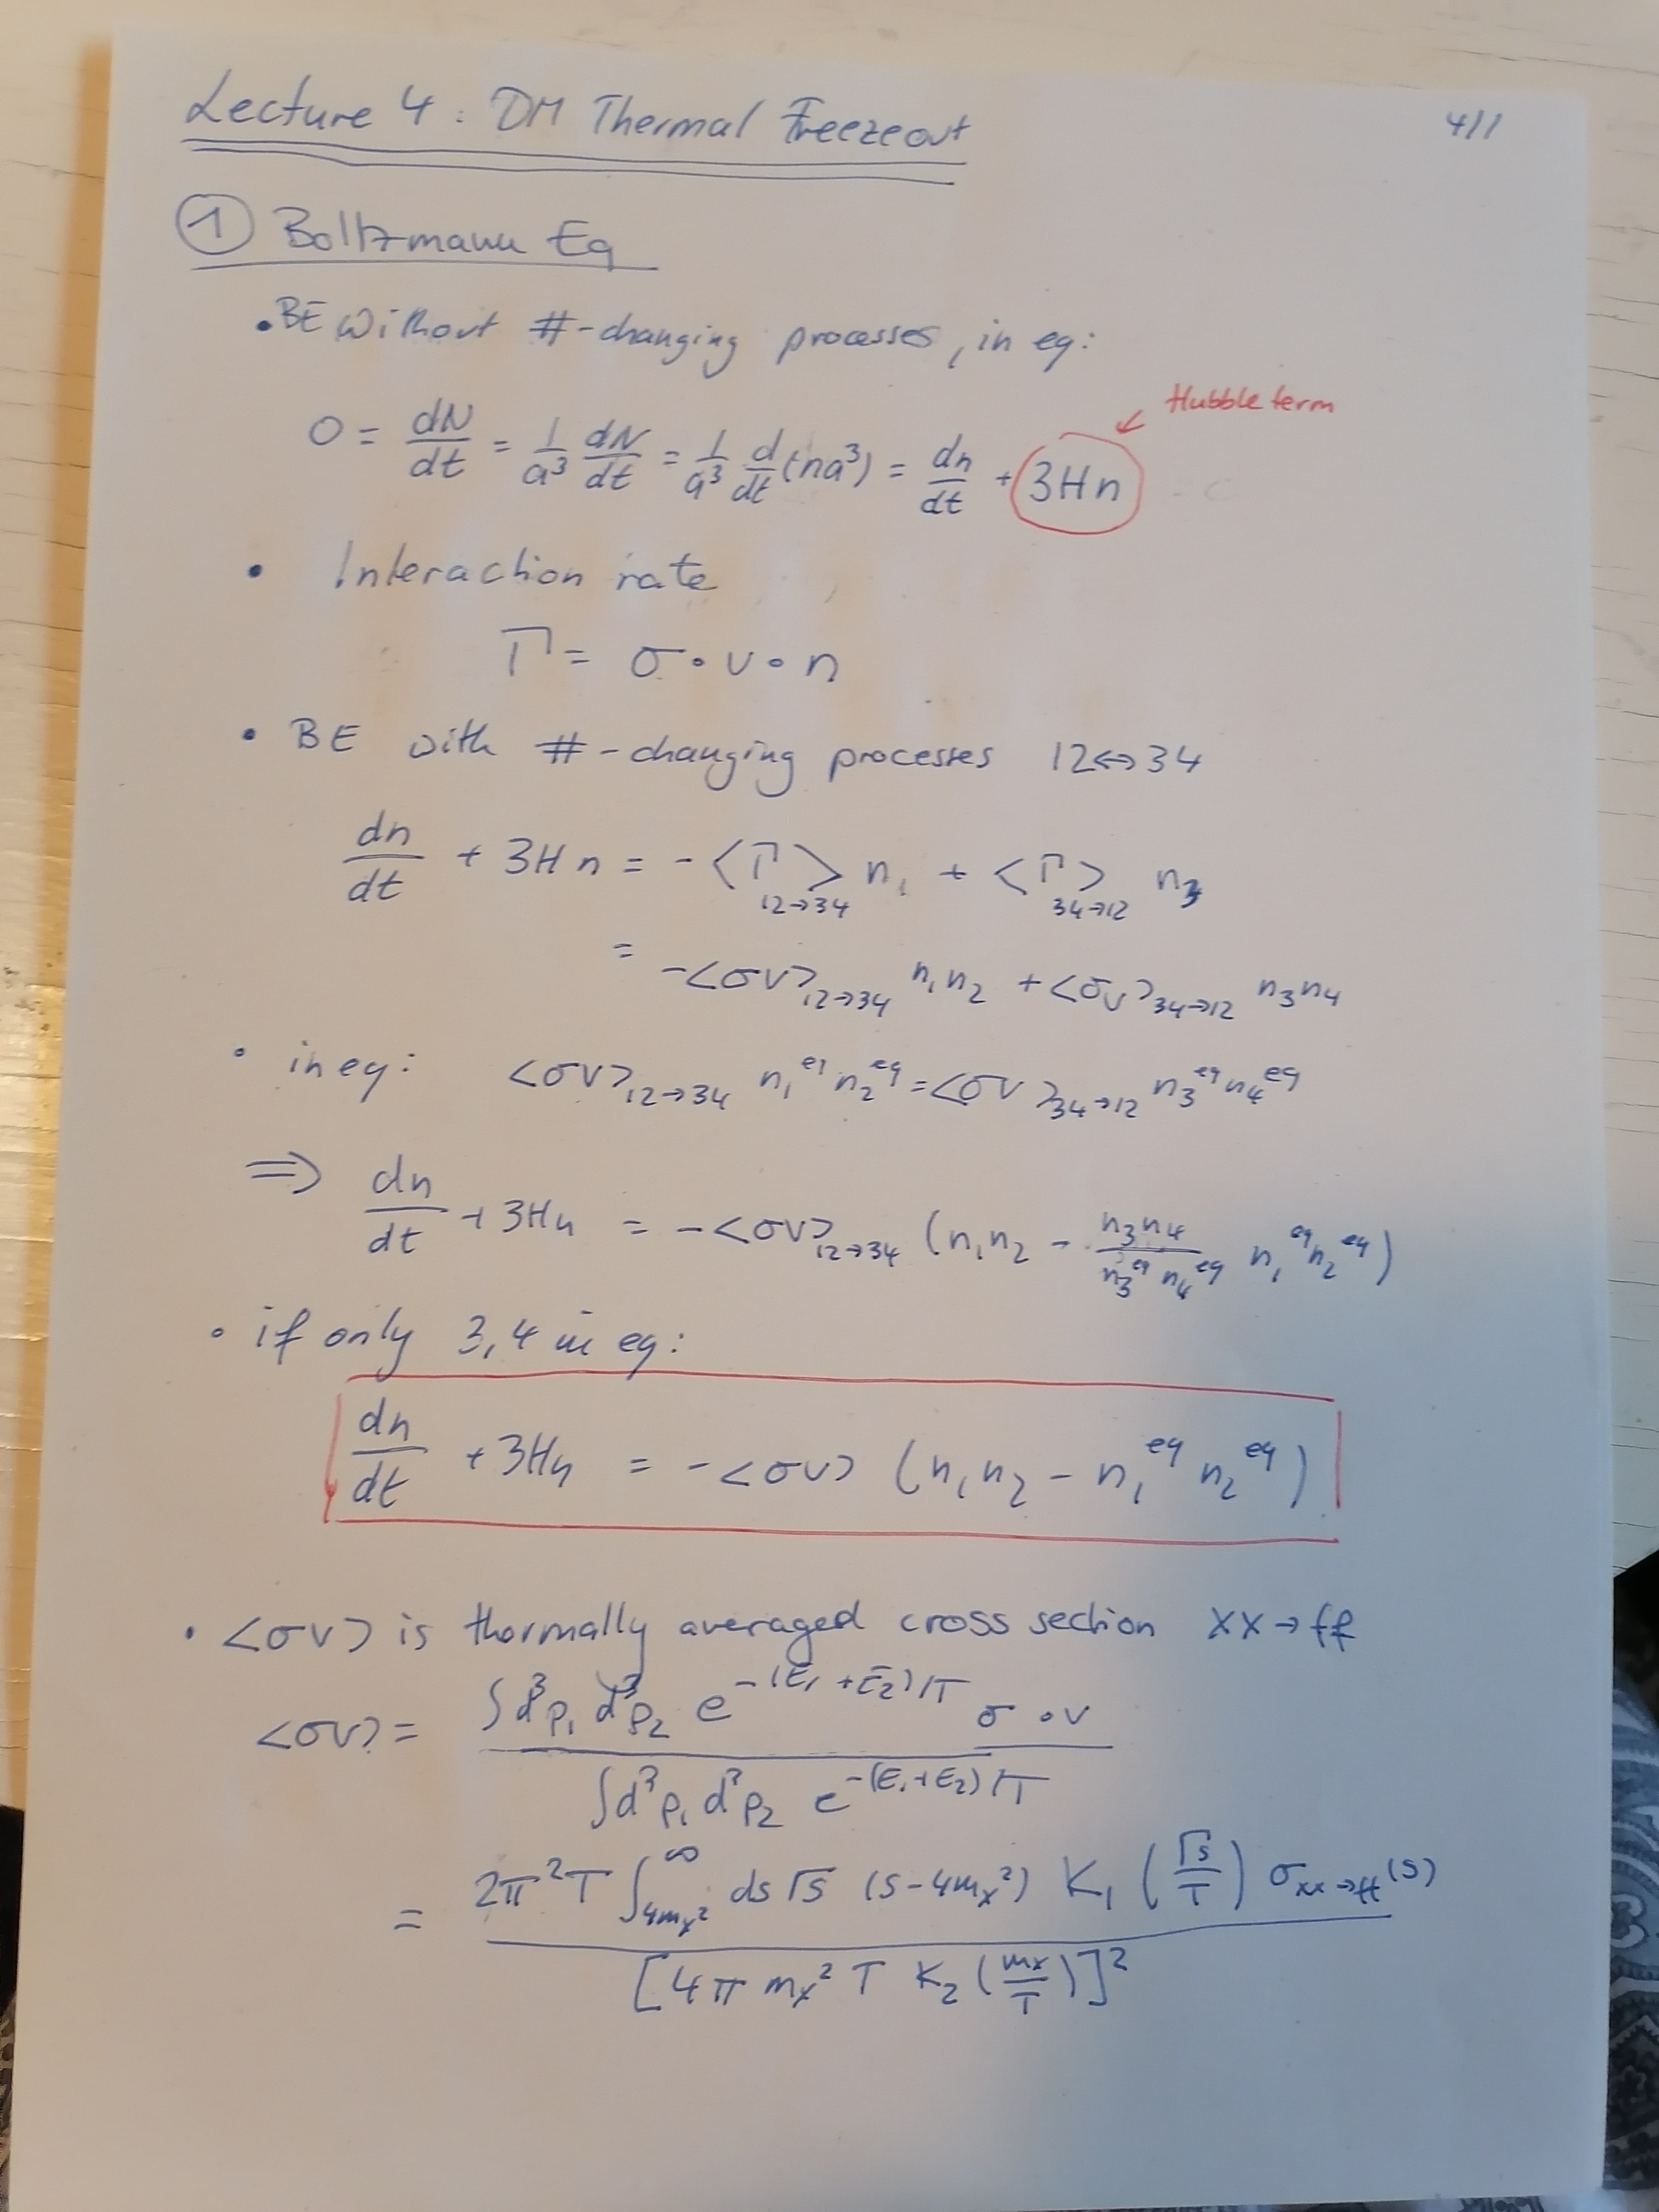 Lecture 4: DM Thermal Freezeout
4/1
① Boltzmann Eq
• BE Without #-changing processes, in eq:
Hubble term
0 = dN/dt = 1/a³ dN/dt = 1/a³ d/dt (na³) = dn/dt + 3Hn
• Interaction rate
Γ = σ · v · n
• BE with #-changing processes 12↔34
dn/dt + 3Hn = -<Γ>₁₂→₃₄ n₁ + <Γ>₃₄→₁₂ n₃
= -<σv>₁₂→₃₄ n₁n₂ + <σv>₃₄→₁₂ n₃n₄
• in eq: <σv>₁₂→₃₄ n₁^eq n₂^eq = <σv>₃₄→₁₂ n₃^eq n₄^eq
⇒ dn/dt + 3Hn = -<σv>₁₂→₃₄ (n₁n₂ - n₃n₄/(n₃^eq n₄^eq) n₁^eq n₂^eq)
• if only 3,4 in eq:
dn/dt + 3Hn = -<σv> (n₁n₂ - n₁^eq n₂^eq)
• <σv> is thermally averaged cross section XX→ff
<σv> = ∫d³p₁ d³p₂ e^(-(E₁+E₂)/T) σ·v / ∫d³p₁ d³p₂ e^(-(E₁+E₂)/T)
= 2π²T ∫_{4mχ²}^∞ ds √s (s-4mχ²) K₁(√s/T) σ_{xx→ff}(s) / [4π mχ² T K₂(mχ/T)]²